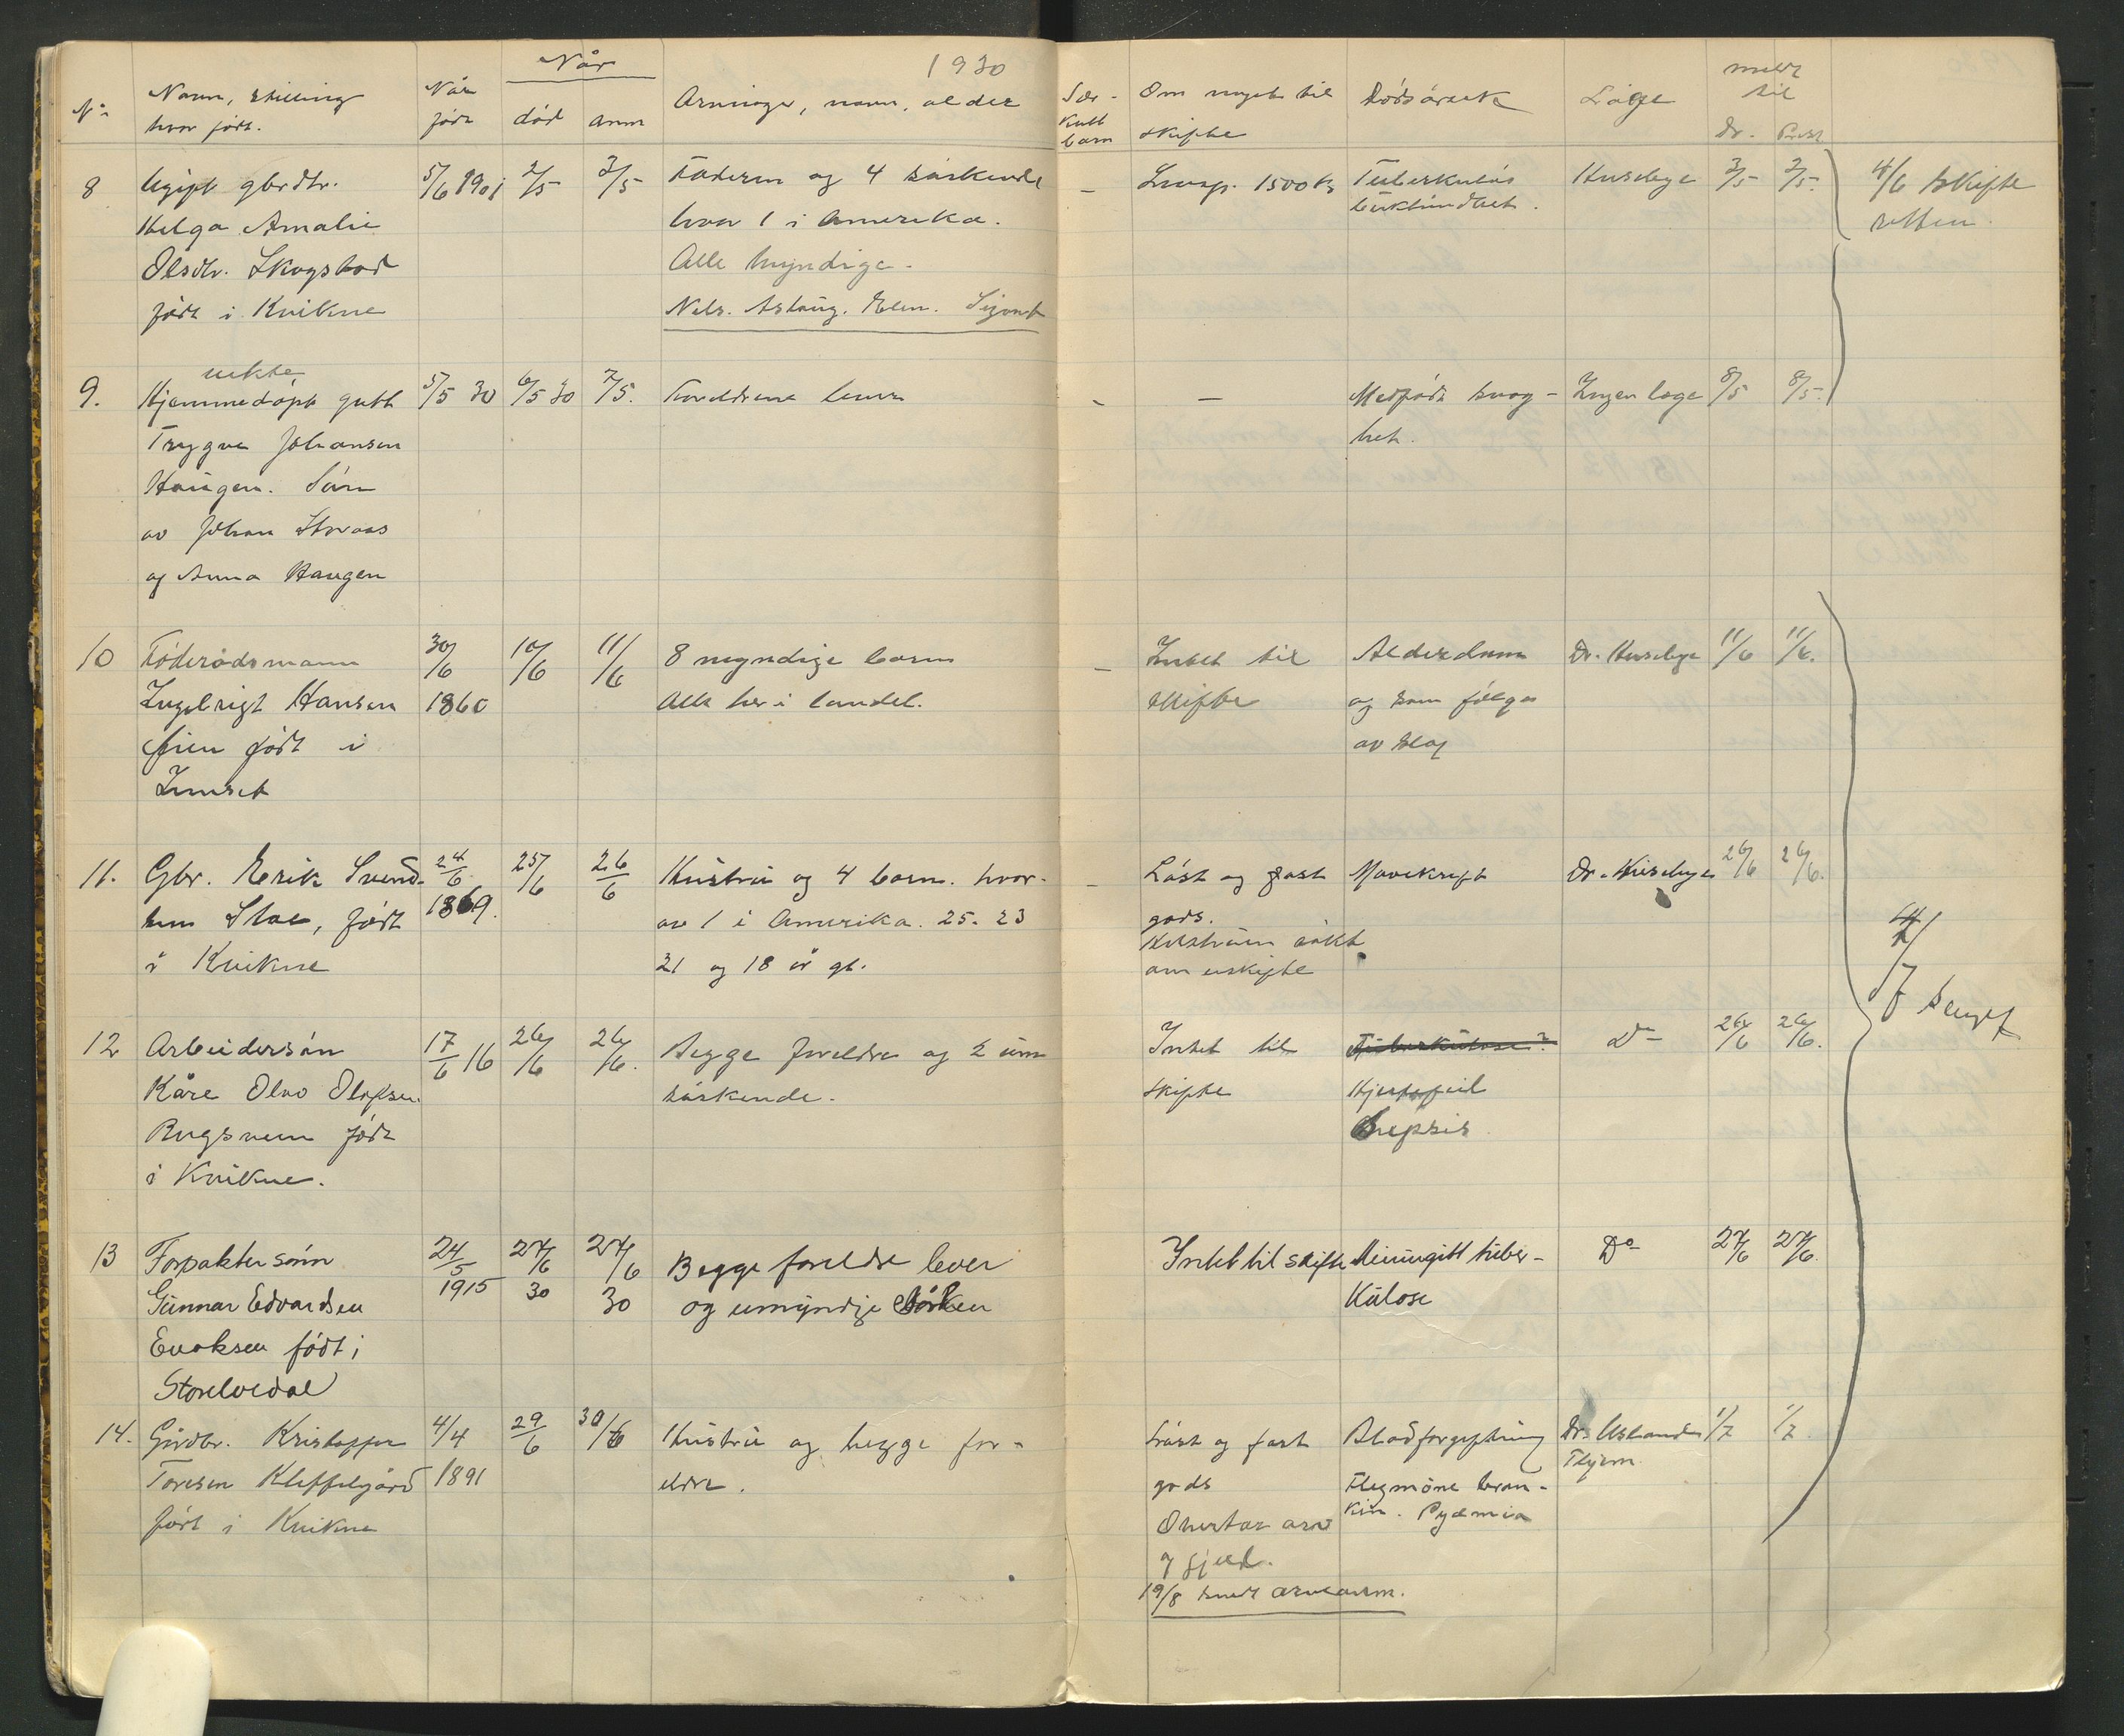 1930
No Navn, stilling hvor født. Når født Når død anm Arvinger, navn, alder Sær-kull barn Om noget til skifte Dødsårsak Læge meldt til Dr. Prest
8 Ugift gbrdtr. 5/6 1901 2/5 3/5 Faderen og 4 søskende - 1500 Kr Tuberkuløs Husebye 3/5 3/5 4/6 skifte
Helga Amalie hvor 1 i Amerika. retten
Olsdtr. Skogstad Alle myndige.
født i Kvikne Nils. Aslaug. Elen. Sigurd
uekte
9. Hjemmedøpt gutt 5/5 30 6/5 30 7/5. Foreldrene lever - - Medfødt svag- Ingen læge 8/5 8/5
Trygve Johansen het.
Haugen. Søn
av Johan Storaas
og Anna Haugen
10 Føderådsmann 30/6 10/6 11/6 8 myndige barn - Intet til Alderdom Dr. Husebye 11/6 11/6.
Ingebrigt Hansen 1860 Alle her i landet. skifte og som følge
født i av slag
Innset
11. Gbr. Erik Svend- 24/6 25/6 26/6 Hustru og 4 barn. hvor- - Løst og fast Mavekreft Dr. Husebye 26/6 26/6.
sen Stae, født 1869. av 1 i Amerika. 25. 23 gods.
i Kvikne 21 og 18 år gl. Hustruen søkt
om uskifte
7 sendt
12 Arbeidersøn 17/6 16 26/6 26/6. Begge foreldre og 2 um Intet til Tuberkulose? Do 26/6 26/6.
Kåre Olav Olafsen søskende. skifte Hjertefeil
Rugsveen født Sepsis
i Kvikne.
13 Forpaktersønn 24/5 27/6 27/6 Begge foreldre lever Intet til skifte Meningitt tuber- Do 27/6 27/6.
Gunnar Edvardsen 1915 30 30 og umyndige søsken kulose
Enoksen født i
Storelvedal
14. Gårdbr. Kristoffer 4/4 29/6 30/6 Hustru og begge for- Løst og fast Blodforgiftning Dr. 1/7 1/7
Toresen Kleffelgård 1891 eldre. gods Flegmone bran-
født i Kvikne Overtar arv kin. Pyæmia
og gjeld.
19/8 sendt arveanm.